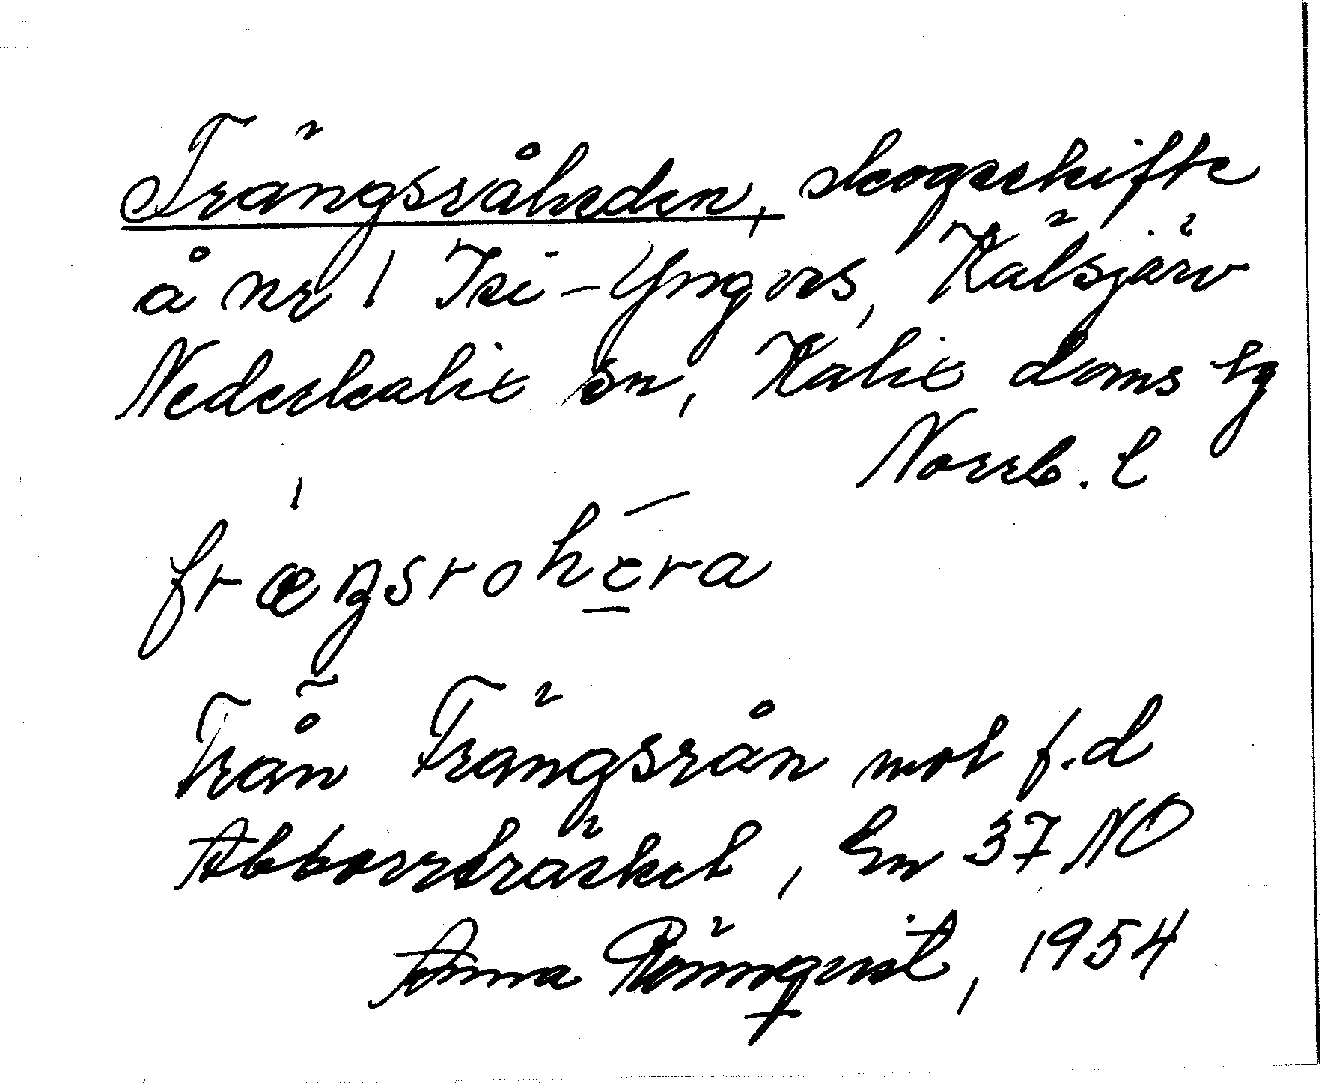 Trängsråheden, skogsskifte
å nr 1 Isi-Yngers, Kälsjärv
Nederkalix sn, Kalix doms tg
Norrb. l
frœŋsrohera
Från Trängsrån mot f.d
Abborrträsket, Gm 37 NO
Anna Rönnqvist, 1954